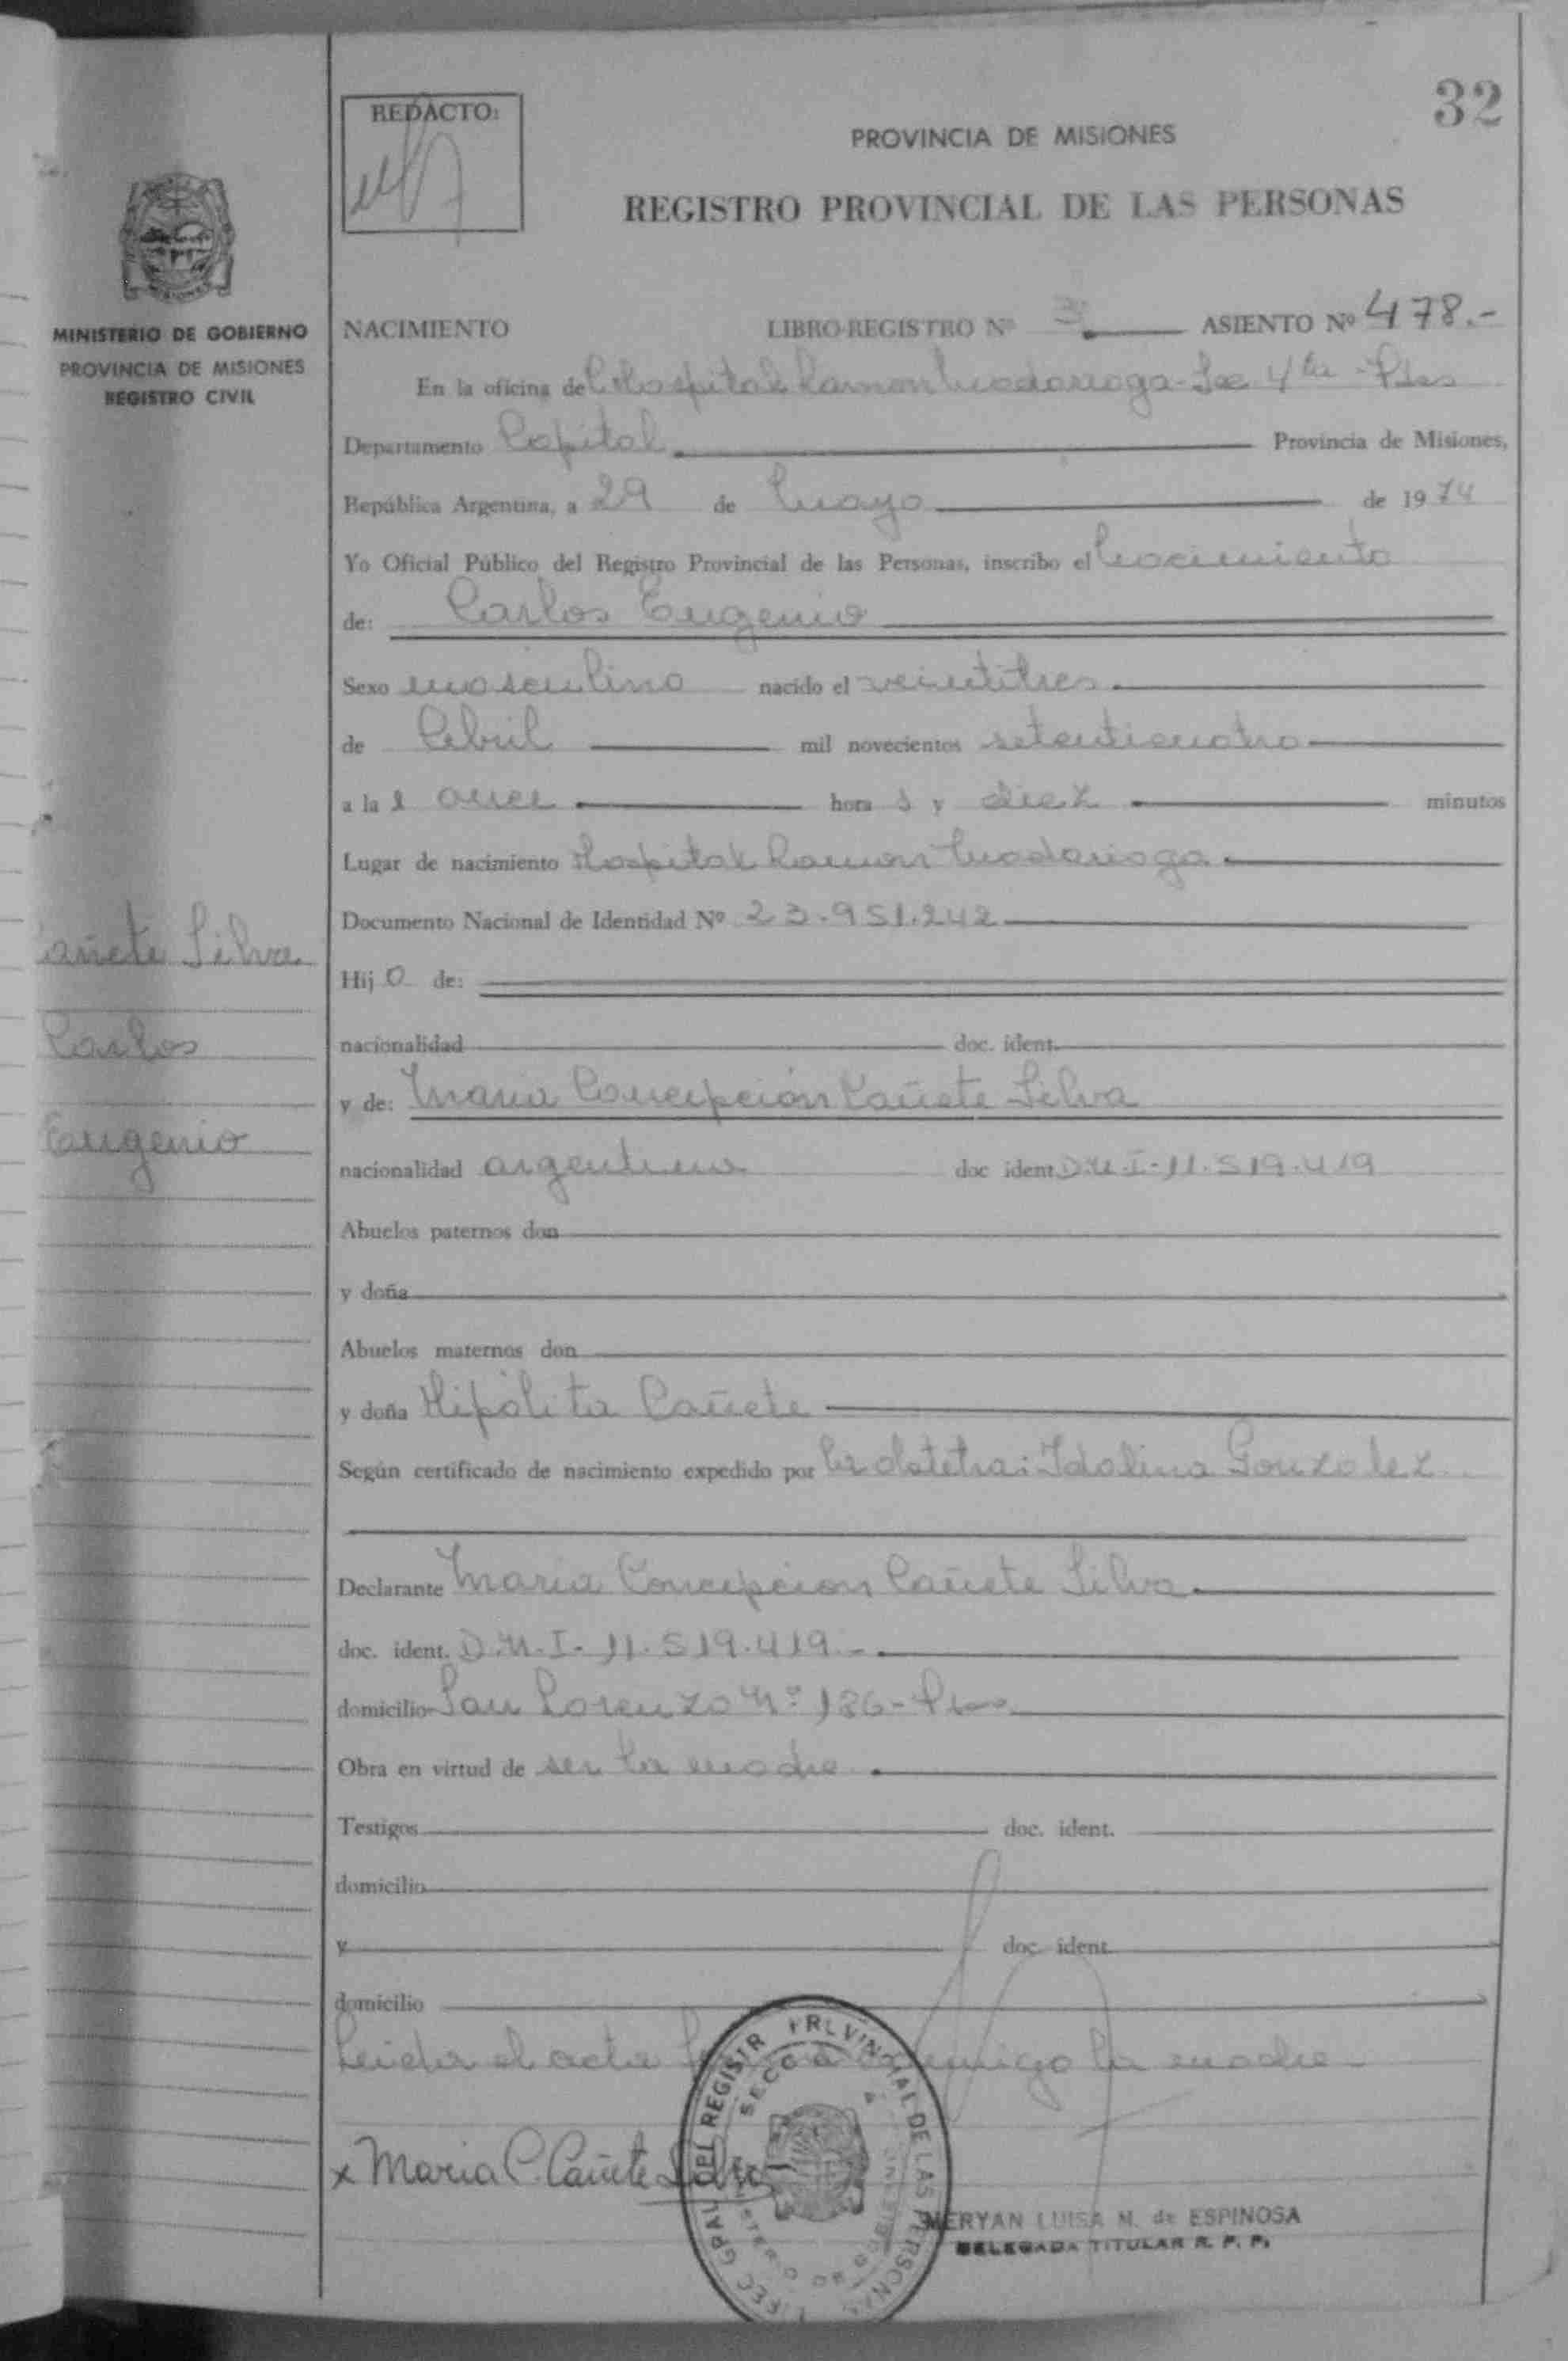 32
REDACTO:
PROVINCIA DE MISIONES
REGISTRO PROVINCIAL DE LAS PERSONAS
MINISTERIO DE GOBIERNO
PROVINCIA DE MISIONES
REGISTRO CIVIL
NACIMIENTO LIBRO-REGISTRO Nº 3 ASIENTO Nº 478.-
En la oficina de Hospital Ramon Madariaga - Sec 4ta - Pdas
Departamento Capital Provincia de Misiones,
República Argentina, a 29 de Mayo de 1974
Yo Oficial Público del Registro Provincial de las Personas, inscribo el Nacimiento
de: Carlos Eugenio
Sexo masculino nacido el veintitres
de Abril mil novecientos setenticuatro
a la s once hora s y diez minutos
Lugar de nacimiento Hospital Ramon Madariaga
Documento Nacional de Identidad Nº 23.951.242
Hij o de:
nacionalidad doc. ident.
y de: Maria Concepción Cañete Silva
nacionalidad argentina doc ident D.N.I- 11.519.419
Abuelos paternos don
y doña
Abuelos maternos don
y doña Hipólita Cañete
Según certificado de nacimiento expedido por la obstetra: Idalina Gonzalez
Declarante Maria Concepcion Cañete Silva
doc. ident. D.N.I- 11.519.419.-
domicilio San Lorenzo Nº 186 - Pdas
Obra en virtud de ser la madre
Testigos doc. ident.
domicilio
y doc. ident.
domicilio
Leida el acta conmigo la madre-
x Maria C. Cañete Silva
MERYAN LUISA N. de ESPINOSA
DELEGADA TITULAR R. P. P.
añete Silva
Carlos
Eugenio